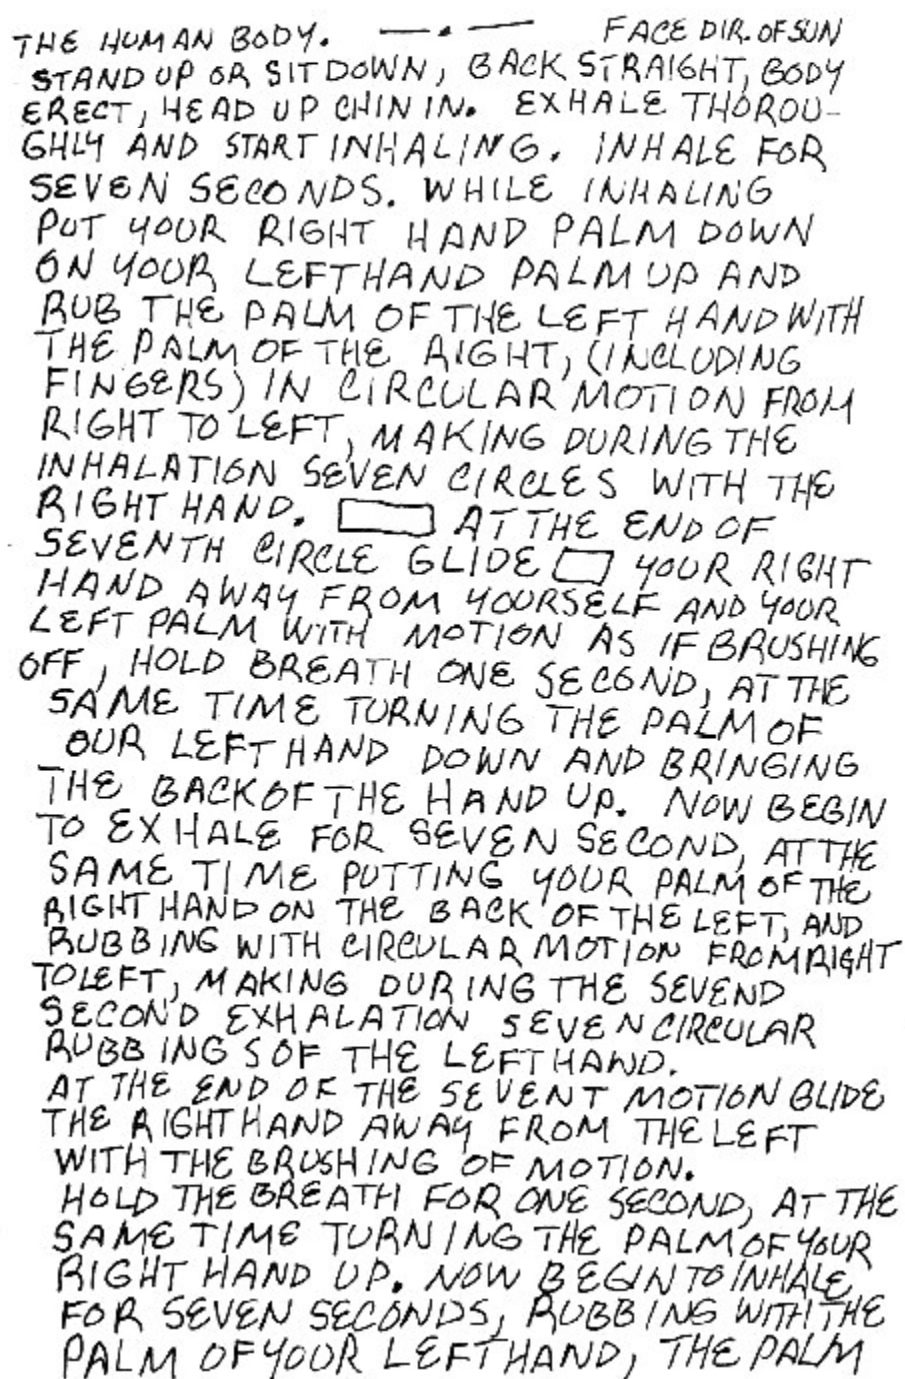 THE HUMAN BODY. —.— FACE DIR. OF SUN
STAND UP OR SIT DOWN, BACK STRAIGHT, BODY
ERECT, HEAD UP CHIN IN. EXHALE THOROU-
GHLY AND START INHALING. INHALE FOR
SEVEN SECONDS. WHILE INHALING
PUT YOUR RIGHT HAND PALM DOWN
ON YOUR LEFT HAND PALM UP AND
RUB THE PALM OF THE LEFT HAND WITH
THE PALM OF THE RIGHT, (INCLUDING
FINGERS) IN CIRCULAR MOTION FROM
RIGHT TO LEFT, MAKING DURING THE
INHALATION SEVEN CIRCLES WITH THE
RIGHT HAND. AT THE END OF
SEVENTH CIRCLE GLIDE YOUR RIGHT
HAND AWAY FROM YOURSELF AND YOUR
LEFT PALM WITH MOTION AS IF BRUSHING
OFF, HOLD BREATH ONE SECOND, AT THE
SAME TIME TURNING THE PALM OF
OUR LEFT HAND DOWN AND BRINGING
THE BACK OF THE HAND UP. NOW BEGIN
TO EXHALE FOR SEVEN SECOND, AT THE
SAME TIME PUTTING YOUR PALM OF THE
RIGHT HAND ON THE BACK OF THE LEFT, AND
RUBBING WITH CIRCULAR MOTION FROM RIGHT
TO LEFT, MAKING DURING THE SEVEND
SECOND EXHALATION SEVEN CIRCULAR
RUBBINGS OF THE LEFT HAND.
AT THE END OF THE SEVENT MOTION GLIDE
THE RIGHT HAND AWAY FROM THE LEFT
WITH THE BRUSHING OF MOTION.
HOLD THE BREATH FOR ONE SECOND, AT THE
SAME TIME TURNING THE PALM OF YOUR
RIGHT HAND UP. NOW BEGIN TO INHALE
FOR SEVEN SECONDS, RUBBING WITH THE
PALM OF YOUR LEFT HAND, THE PALM